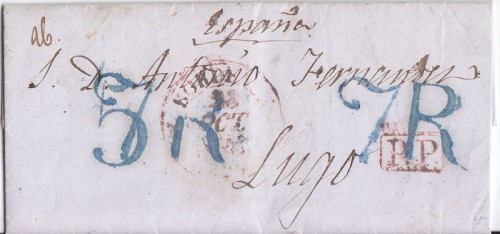 ab.
España
S. D. Antonio Fernandez
5R 7R
OCT
P.P.
Lugo